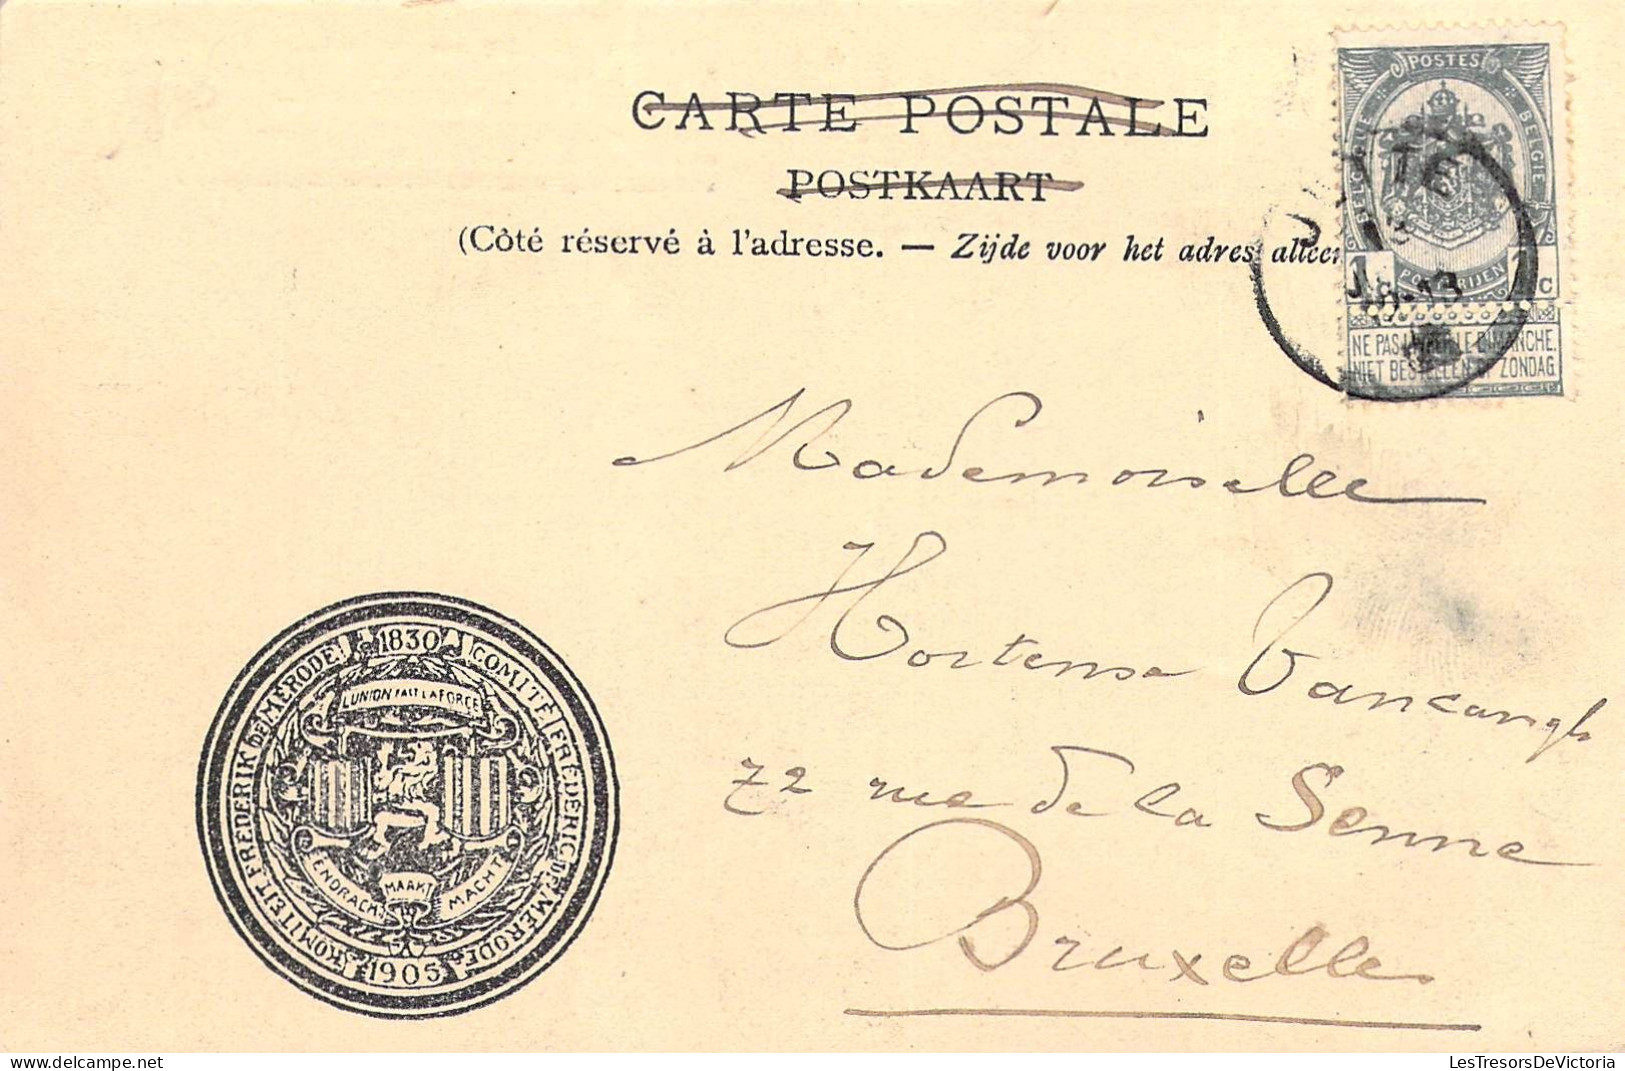 CARTE POSTALE
POSTKAART
(Côté réservé à l'adresse. — Zijde voor het adres
POSTES
BELGIQUE
BELGIE
POSTERIJEN
1 1 C
NE PAS LIVRER LE DIMANCHE.
NIET BESTELLEN OP ZONDAG
JETTE
Mademoiselle
Hortense Vancangh
72 rue de la Senne
Bruxelles
1830
COMITÉ FRÉDÉRIC DE MÉRODE
KOMITEIT FREDERIK DE MERODE
L'UNION FAIT LA FORCE
EENDRACHT MAAKT MACHT
1905
LesTresorsDeVictoria